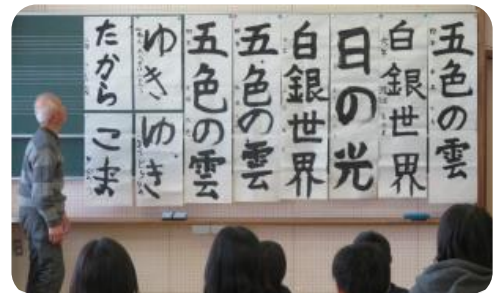 五色の雲
白銀世界
日の光
白銀世界
五色の雲
五色の雲
ゆき
たから
ゆき
こま